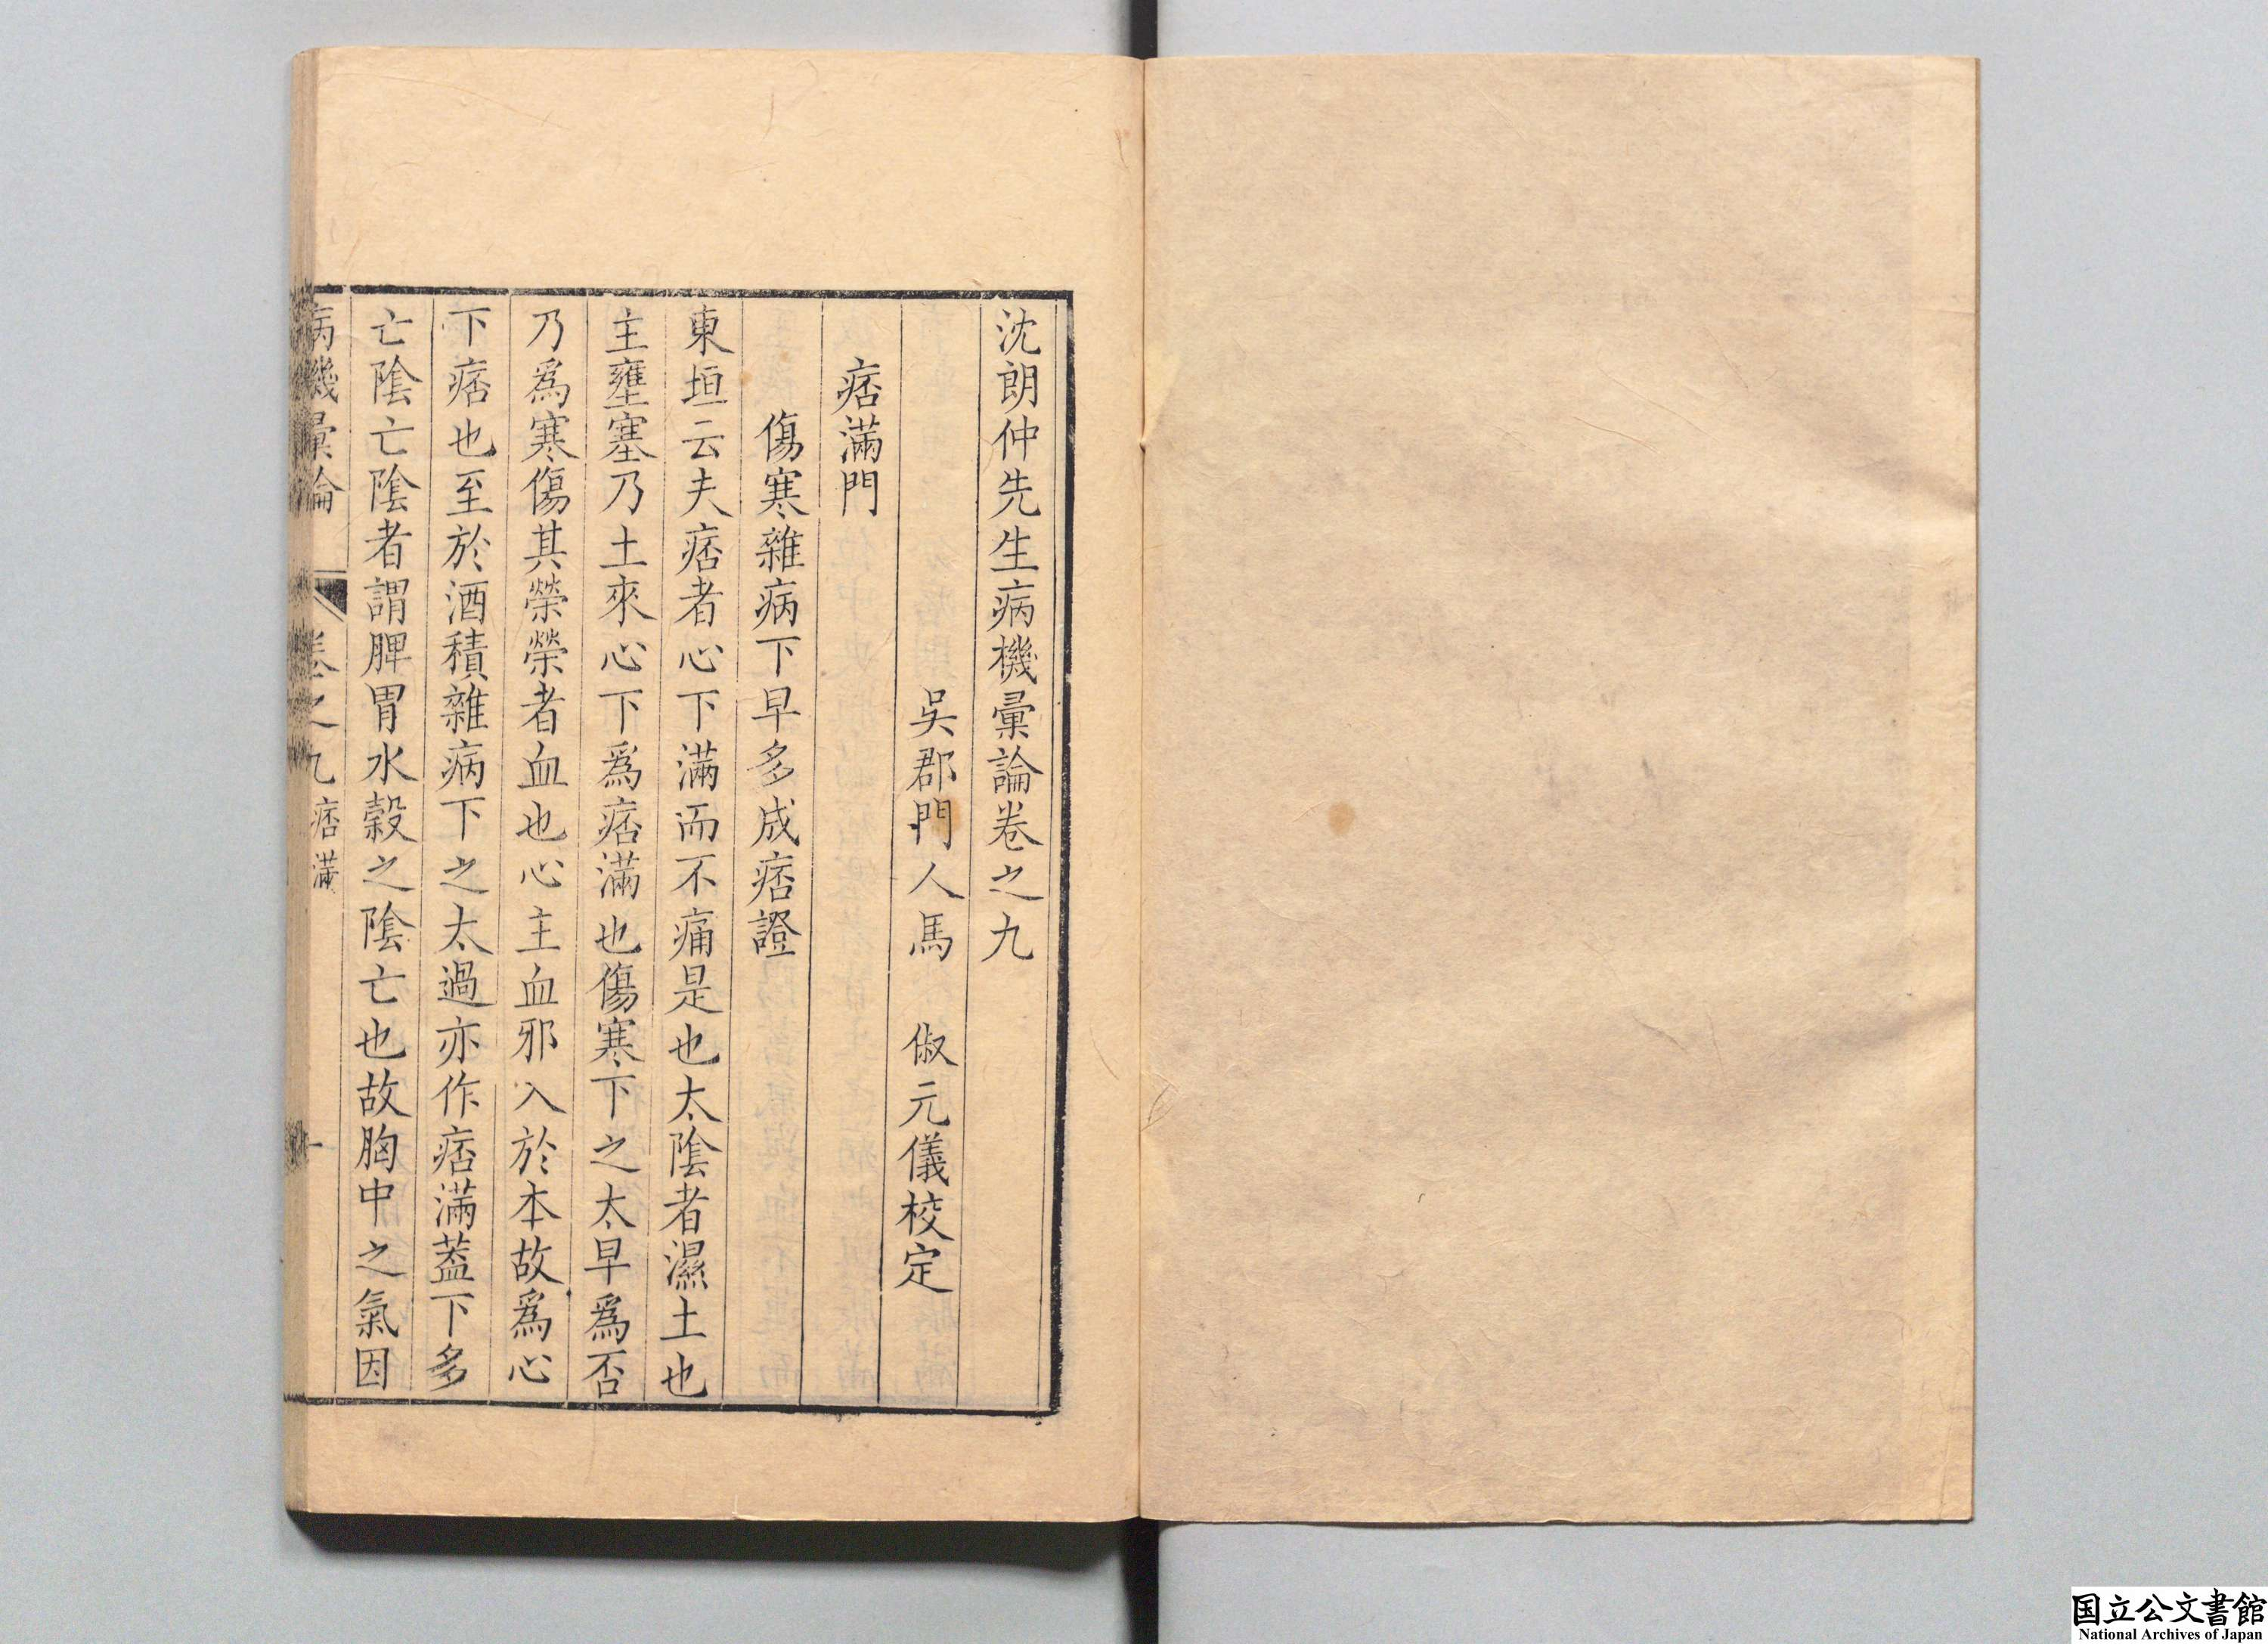 沈朗仲先生病機彙論卷之九
吳郡門人馬　俶元儀校定
痞滿門
傷寒雜病下早多成痞證
東垣云夫痞者心下滿而不痛是也太陰者濕土也
主壅塞乃土來心下爲痞滿也傷寒下之太早爲否
乃爲寒傷其榮榮者血也心主血邪入於本故爲心
下痞也至於酒積雜病下之太過亦作痞滿蓋下多
亡陰亡陰者謂脾胃水穀之陰亡也故胸中之氣因
病機彙論　卷之九 痞滿　一
国立公文書館
National Archives of Japan